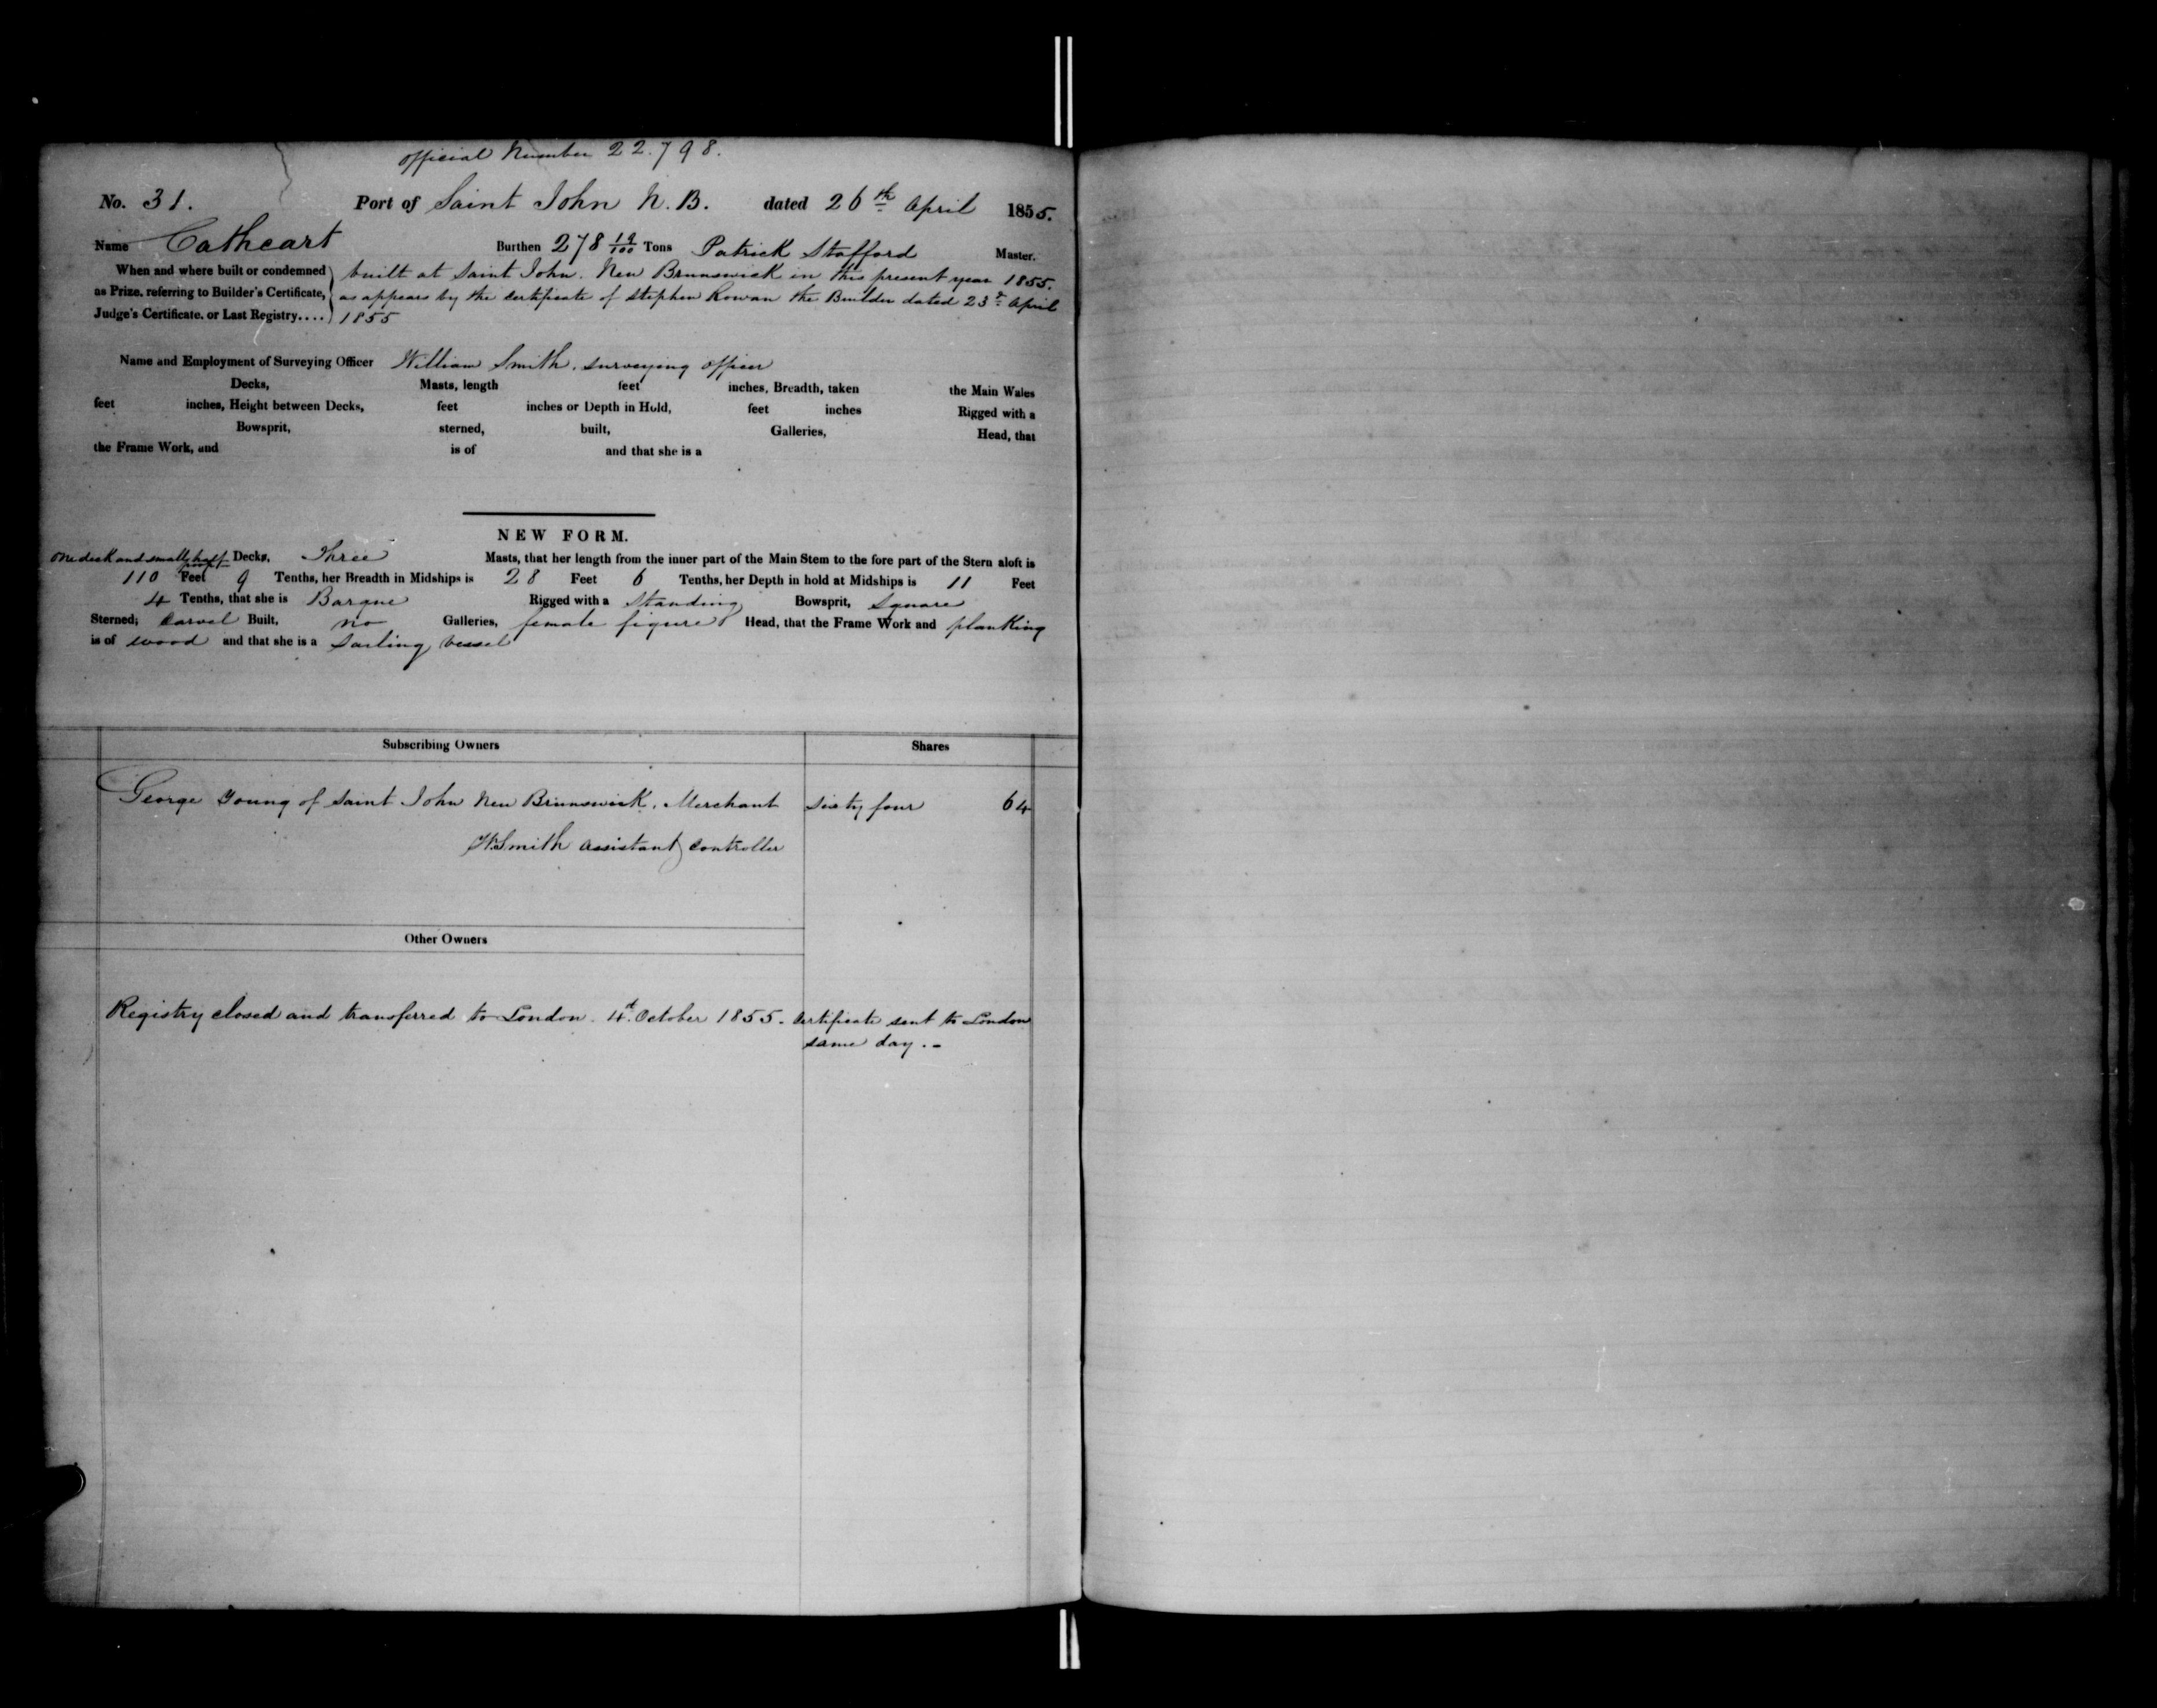 official Number 22.798.
No. 31. Port of Saint John N.B. dated 26th April 1855.
Name Cathcart Burthen 278 19/100 Tons Patrick Stafford Master.
When and where built or condemned built at Saint John. New Brunswick in this present year 1855.
as Prize, referring to Builder's Certificate, as appears by the certificate of Stephen Rowan the Builder dated 23d April
Judge's Certificate, or Last Registry.... 1855
Name and Employment of Surveying Officer William Smith, surveying officer
Decks, Masts, length feet inches, Breadth, taken the Main Wales
feet inches, Height between Decks, feet inches or Depth in Hold, feet inches Rigged with a
Bowsprit, sterned, built, Galleries, Head, that
the Frame Work, and is of and that she is a
NEW FORM.
One deck and small half poop Decks, Three Masts, that her length from the inner part of the Main Stem to the fore part of the Stern aloft is
110 Feet 9 Tenths, her Breadth in Midships is 28 Feet 6 Tenths, her Depth in hold at Midships is 11 Feet
4 Tenths, that she is Barque Rigged with a Standing Bowsprit, Square
Sterned; Carvel Built, no Galleries, female figure Head, that the Frame Work and planking
is of wood and that she is a Sailing vessel
Subscribing Owners Shares
George Young of Saint John New Brunswick, Merchant Sixty four 64
W Smith Assistant Controller
Other Owners
Registry closed and transferred to London. 4th October 1855. Certificate sent to London
same day.-